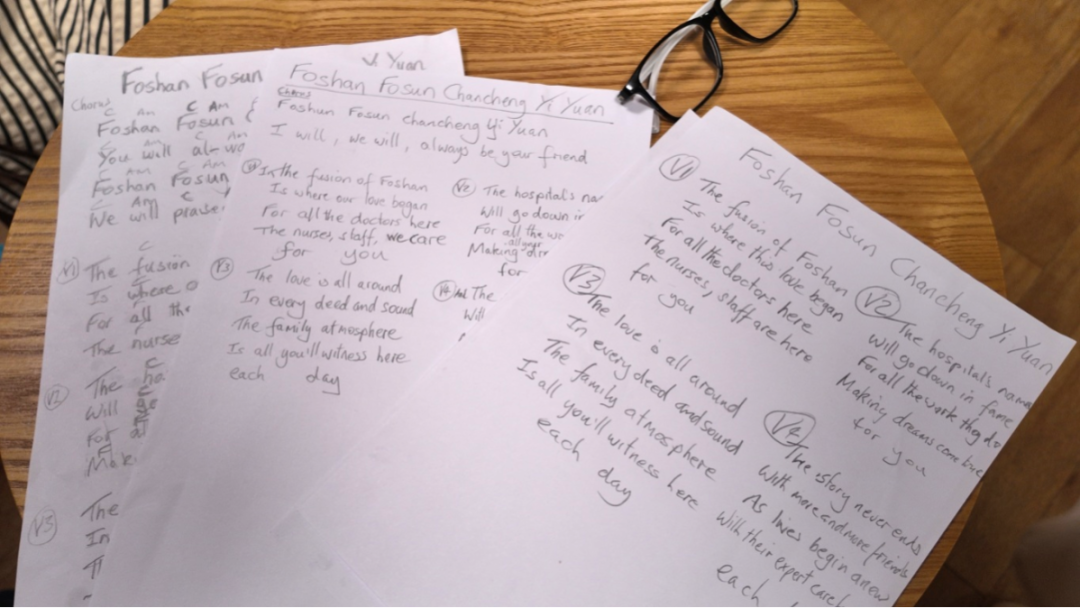 V. Yuan
Foshan Fosun
Chorus
C Am C Am
Foshan Fosun C
C Am
You will al-wo
C Am C Am
Foshan Fosun
Am C
We will praise
V1
C
The fusion
Is where o
For all the
F
The nurse
V2
C
The ho
Will
For
Mak
V3
The
In
Foshan Fosun Chancheng Yi Yuan
Chorus
Foshun Fosun Chancheng Yi Yuan
I will, we will, always be your friend
In the fusion of Foshan
Is where our love began
For all the doctors here
The nurses, staff, we care
for you
V2
The hospital's na
Will go down in
For all the wo
Making dre
for
V3
The love is all around
In every deed and sound
The family atmosphere
Is all you'll witness here
each day
V4
The
Will
Foshan Fosun Chancheng Yi Yuan
V1
The fusion of Foshan
Is where this love began
For all the doctors here
The nurses, staff are here
for you
V2
The hospital's name
Will go down in fame
For all the work they do
Making dreams come true
for you
V3
The love is all around
In every deed and sound
The family atmosphere
Is all you'll witness here
each day
V4
The story never ends
With more and more friends
As lives begin anew
With their expert care
each